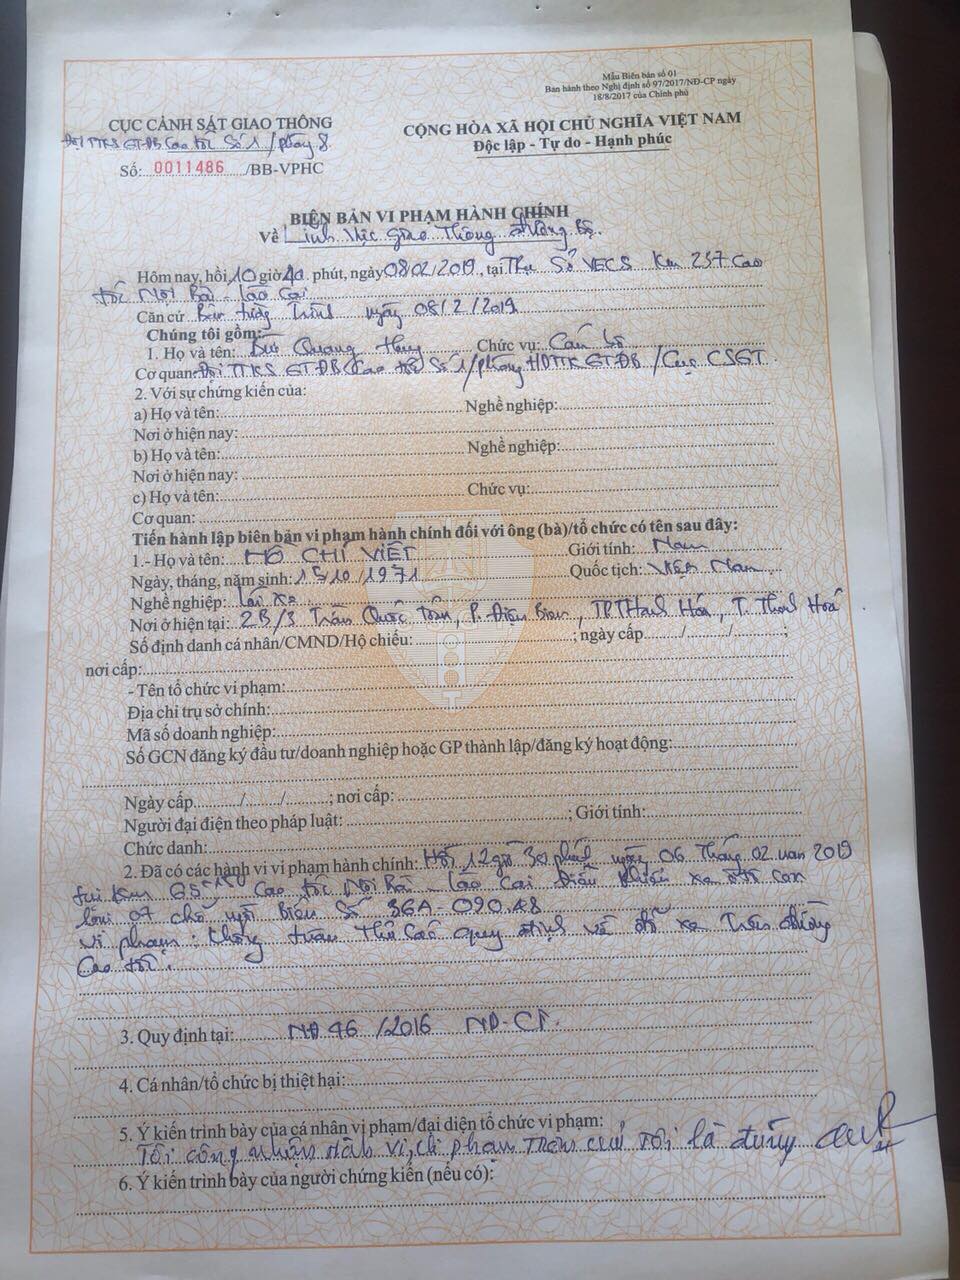 Mẫu Biên bản số 01
Ban hành theo Nghị định số 97/2017/NĐ-CP ngày
18/8/2017 của Chính phủ
CỤC CẢNH SÁT GIAO THÔNG
Đội TTKS GTĐB Cao tốc Số 1 / phòng 8
Số: 0011486 /BB-VPHC
CỘNG HÒA XÃ HỘI CHỦ NGHĨA VIỆT NAM
Độc lập - Tự do - Hạnh phúc
BIÊN BẢN VI PHẠM HÀNH CHÍNH
Về Lĩnh vực giao thông đường bộ.
Hôm nay, hồi 10 giờ 40 phút, ngày 08/02/2019, tại Trụ Sở VECS Km 237 Cao
tốc Nội Bài - Lào Cai
Căn cứ Bản tường trình ngày 08/2/2019
Chúng tôi gồm:
1. Họ và tên: Quang Chức vụ: Cán bộ
Cơ quan: Đội TTKS GTĐB Cao tốc Số 1/phòng HDTTKSGTĐB/Cục CSGT.
2. Với sự chứng kiến của:
a) Họ và tên: Nghề nghiệp:
Nơi ở hiện nay:
b) Họ và tên: Nghề nghiệp:
Nơi ở hiện nay:
c) Họ và tên: Chức vụ:
Cơ quan:
Tiến hành lập biên bản vi phạm hành chính đối với ông (bà)/tổ chức có tên sau đây:
1.- Họ và tên: HỒ CHÍ VIẾT Giới tính: Nam
Ngày, tháng, năm sinh: 15/10/1971 Quốc tịch: Việt Nam
Nghề nghiệp: Lái xe
Nơi ở hiện tại: 2B/3 Trần Quốc Toản, P. Điện Biên, TP Thanh Hóa, T. Thanh Hoá
Số định danh cá nhân/CMND/Hộ chiếu: ; ngày cấp / / ;
nơi cấp:
- Tên tổ chức vi phạm:
Địa chỉ trụ sở chính:
Mã số doanh nghiệp:
Số GCN đăng ký đầu tư/doanh nghiệp hoặc GP thành lập/đăng ký hoạt động:
Ngày cấp / / ; nơi cấp:
Người đại diện theo pháp luật: ; Giới tính:
Chức danh:
2. Đã có các hành vi vi phạm hành chính: Hồi 12 giờ 30 phút, ngày 06 tháng 02 năm 2019
tại Km Cao tốc Nội Bài - Lào Cai điều khiển xe ôtô con
07 chỗ ngồi Biển Số 36A-090.48
Vi phạm: Không tuân thủ các quy định về đỗ xe trên đường
Cao tốc.
3. Quy định tại: NĐ 46/2016 NĐ-CP.
4. Cá nhân/tổ chức bị thiệt hại:
5. Ý kiến trình bày của cá nhân vi phạm/đại diện tổ chức vi phạm:
Tôi công nhận hành vi vi phạm trên của tôi là đúng
6. Ý kiến trình bày của người chứng kiến (nếu có):